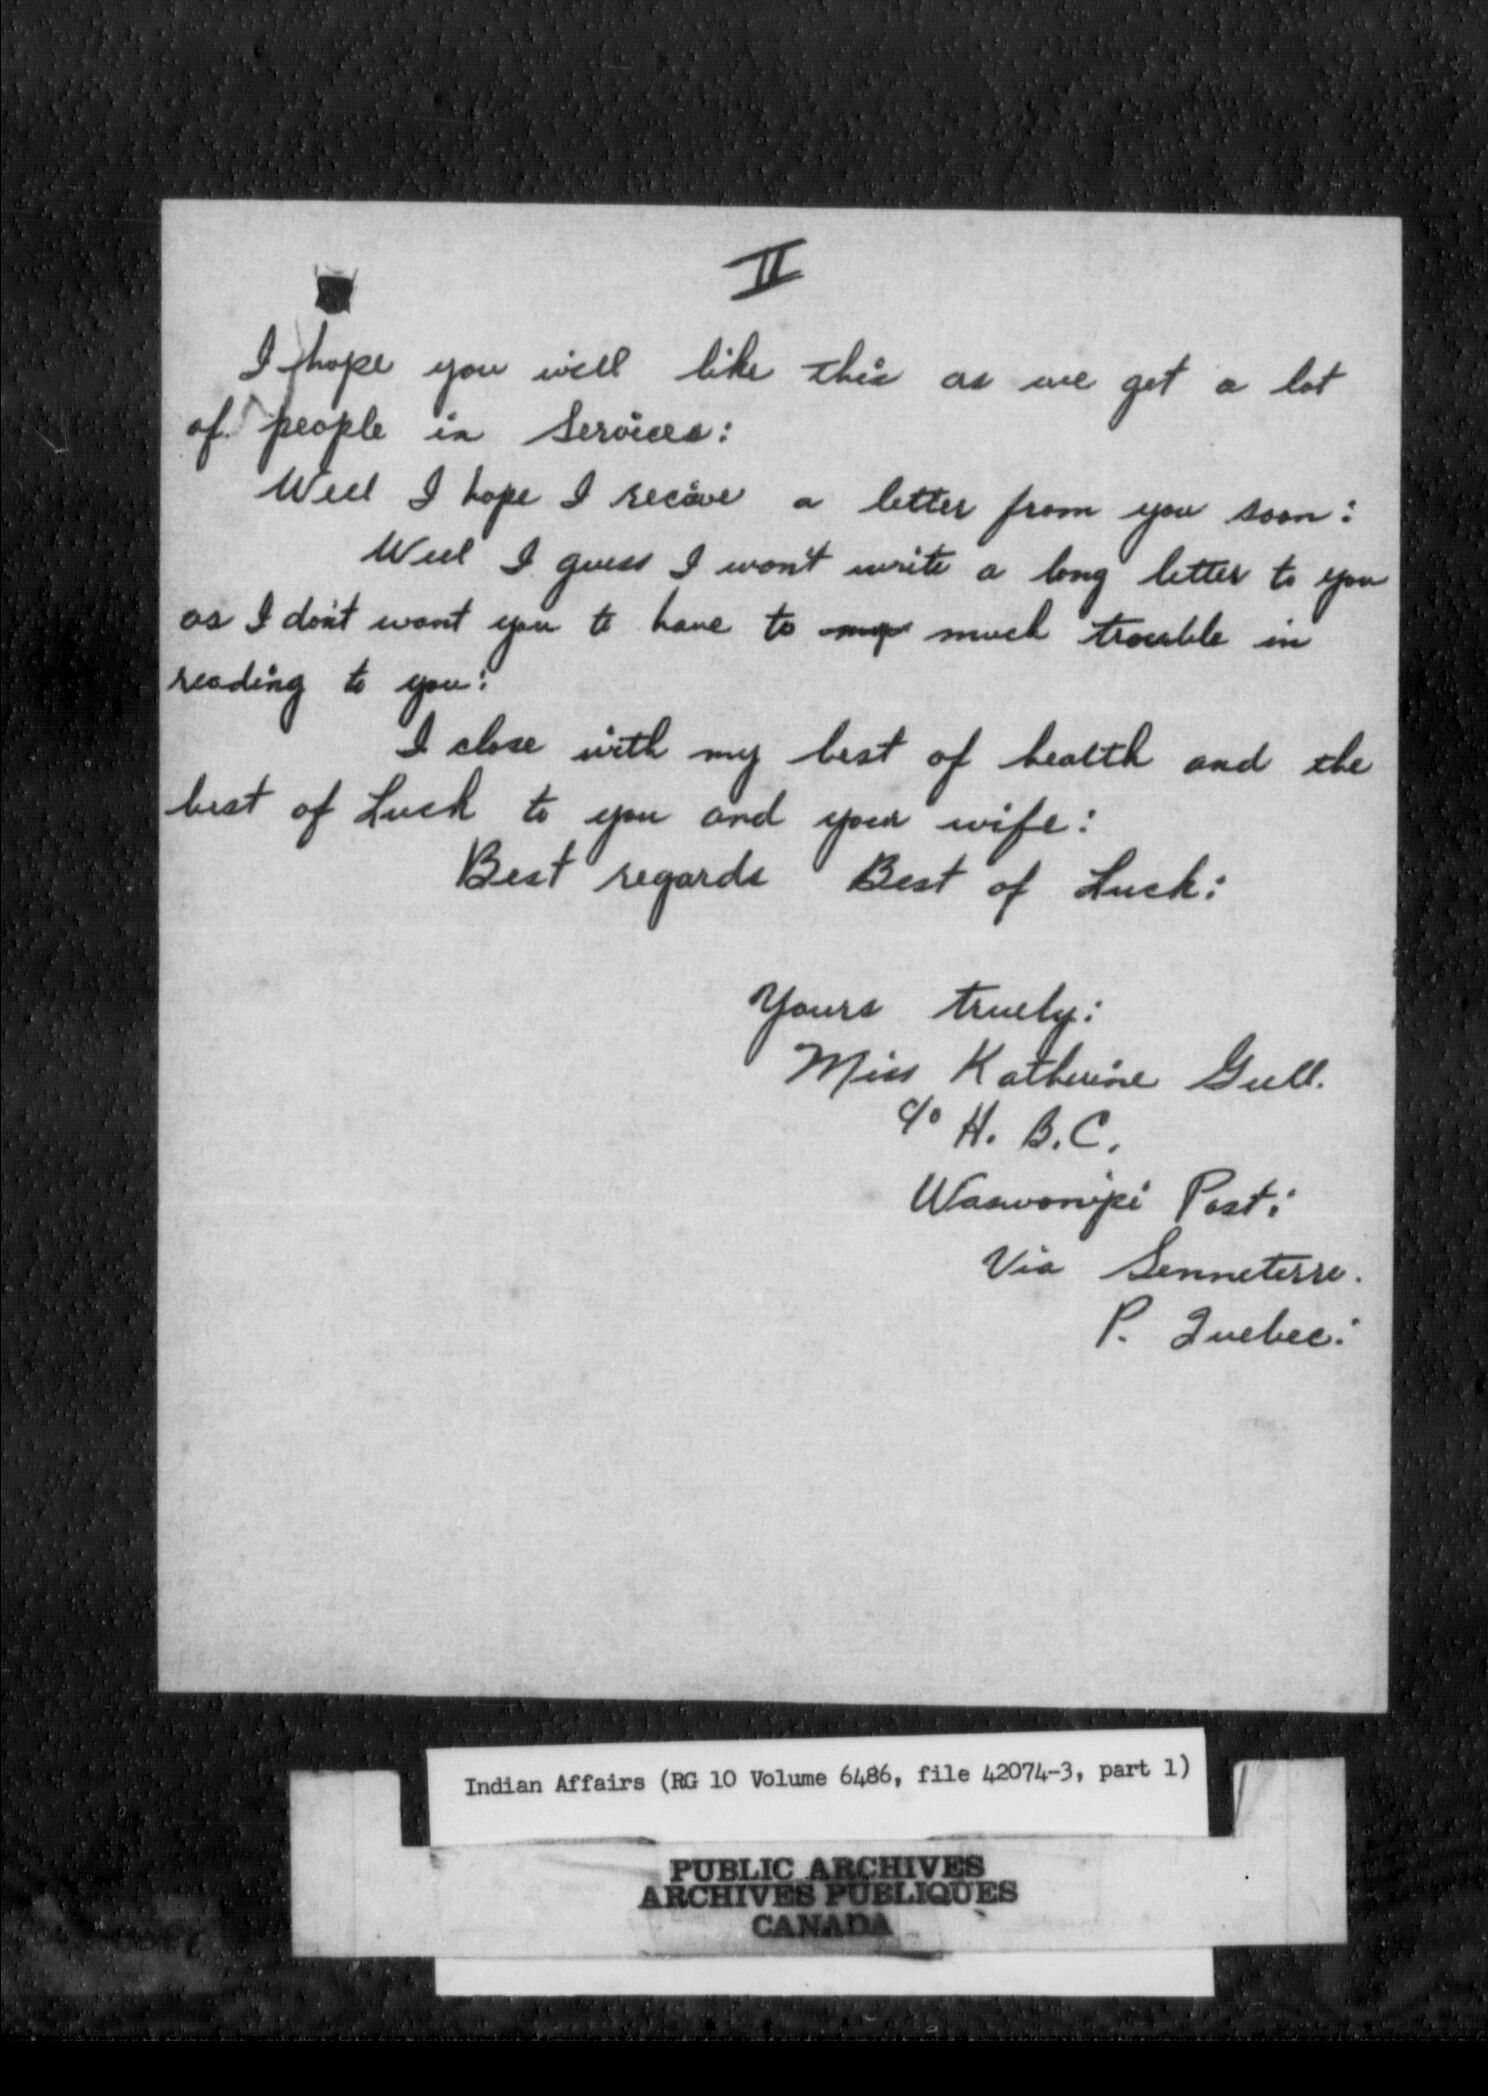 II
I hope you will like this as we get a lot
of people in Services:
Well I hope I recive a letter from you soon:
Well I guess I won't write a long letter to you
as I don't want you to have to much trouble in
reading to you:
I close with my best of health and the
best of Luck to you and your wife:
Best regards Best of Luck:
Yours truely:
Miss Katherine Gull.
c/o H. B. C.
Waswonipi Post:
Via Senneterre.
P. Quebec:
Indian Affairs (RG 10 Volume 6486, file 42074-3, part 1)
PUBLIC ARCHIVES
ARCHIVES PUBLIQUES
CANADA